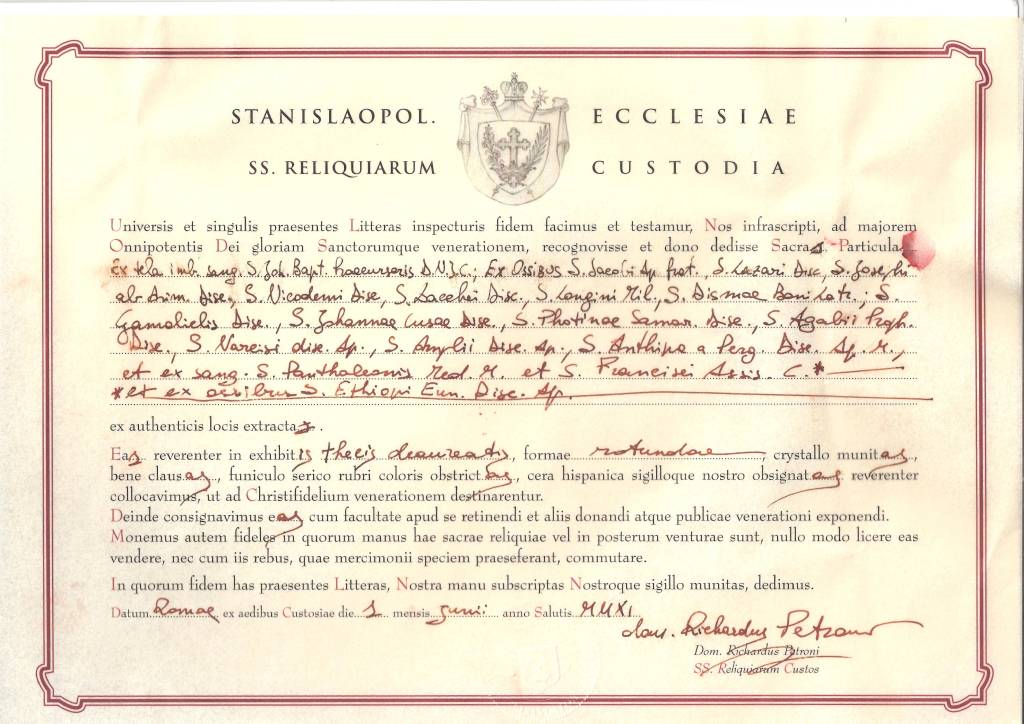 STANISLAOPOL. ECCLESIAE
SS. RELIQUIARUM CUSTODIA
Universis et singulis praesentes Litteras inspecturis fidem facimus et testamur, Nos infrascripti, ad majorem
Onnipotentis Dei gloriam Sanctorumque venerationem, recognovisse et dono dedisse Sacras Particulas
ex tela imb. sang. S. Joh. Bapt. Praecursoris D.N.J.C.; Ex Ossibus S. Jacobi Ap. frat., S. Lazari Disc., S. Josephi
ab Arim. Disc., S. Nicodemi Disc., S. Zacchei Disc., S. Longini Mil., S. Dismae Boni Latr., S.
Gamalielis Disc., S. Johannae Cusae Disc., S. Photinae Samar. Disc., S. Agabii Proph.
Disc., S. Narcisi disc. Ap., S. Amplii Disc. Ap., S. Anthipa a Perg. Disc. Ap. M.,
et ex sang. S. Panthaleonis Med. M. et S. Francisci Assis. C.*
*et ex ossibus S. Ethiopi Eun. Disc. Ap.
ex authenticis locis extractas.
Eas reverenter in exhibitis thecis deaureatis, formae rotundae, crystallo munitas,
bene clausas, funiculo serico rubri coloris obstrictas, cera hispanica sigilloque nostro obsignatas reverenter
collocavimus, ut ad Christifidelium venerationem destinarentur.
Deinde consignavimus eas cum facultate apud se retinendi et aliis donandi atque publicae venerationi exponendi.
Monemus autem fideles in quorum manus hae sacrae reliquiae vel in posterum venturae sunt, nullo modo licere eas
vendere, nec cum iis rebus, quae mercimonii speciem praeseferant, commutare.
In quorum fidem has praesentes Litteras, Nostra manu subscriptas Nostroque sigillo munitas, dedimus.
Datum Romae ex aedibus Custosiae die 1 mensis Junii anno Salutis MMXI
Dom. Richardus Petroni
Dom. Richardus Petroni
SS. Reliquiarum Custos